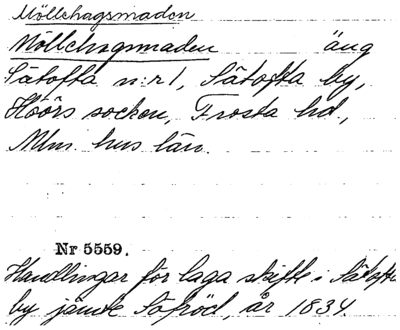 Möllehagsmaden
Möllehagsmaden äng
Sätofta n:r 1, Sätofta by,
Höörs socken, Frosta hd,
Mlm. hus län.
Nr 5559.
Handlingar för laga skifte i Sätofta
by jämte Störöd, år 1834.